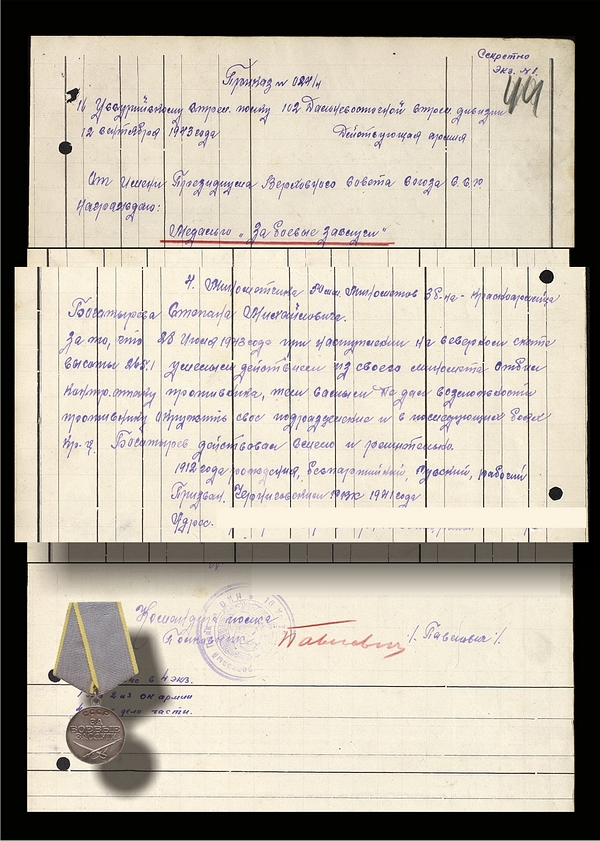 Секретно
Экз. №1.
49
Приказ № 024/н
16 Уссурийскому стрел. полку 102 Дальневосточной стрел. дивизии
12 сентября 1943 года Действующая армия
От имени Президиума Верховного Совета Союза С.С.Р
Награждаю:
Медалью „За боевые заслуги"
4. Минометчика 50 мм. минометов красноармейца
Богатырева Степана Михайловича.
За то, что 28 Июля 1943 года при наступлении на северном скате
высоты 265.1 умелыми действиями из своего миномета отбил
контратаку противника, тем самым не дал возможности
противнику окружить свое подразделение и в последующих боях
кр-ц Богатырев действовал смело и решительно.
1912 года рождения, беспартийный, русский, рабочий
Призван РВК 1941 года
Адрес:
Командир полка
Полковник Павлович /Павлович/.
в 4 экз.
2 из ОК армии
дело части.
ЗА
БОЕВЫЕ
ЗАСЛУГИ